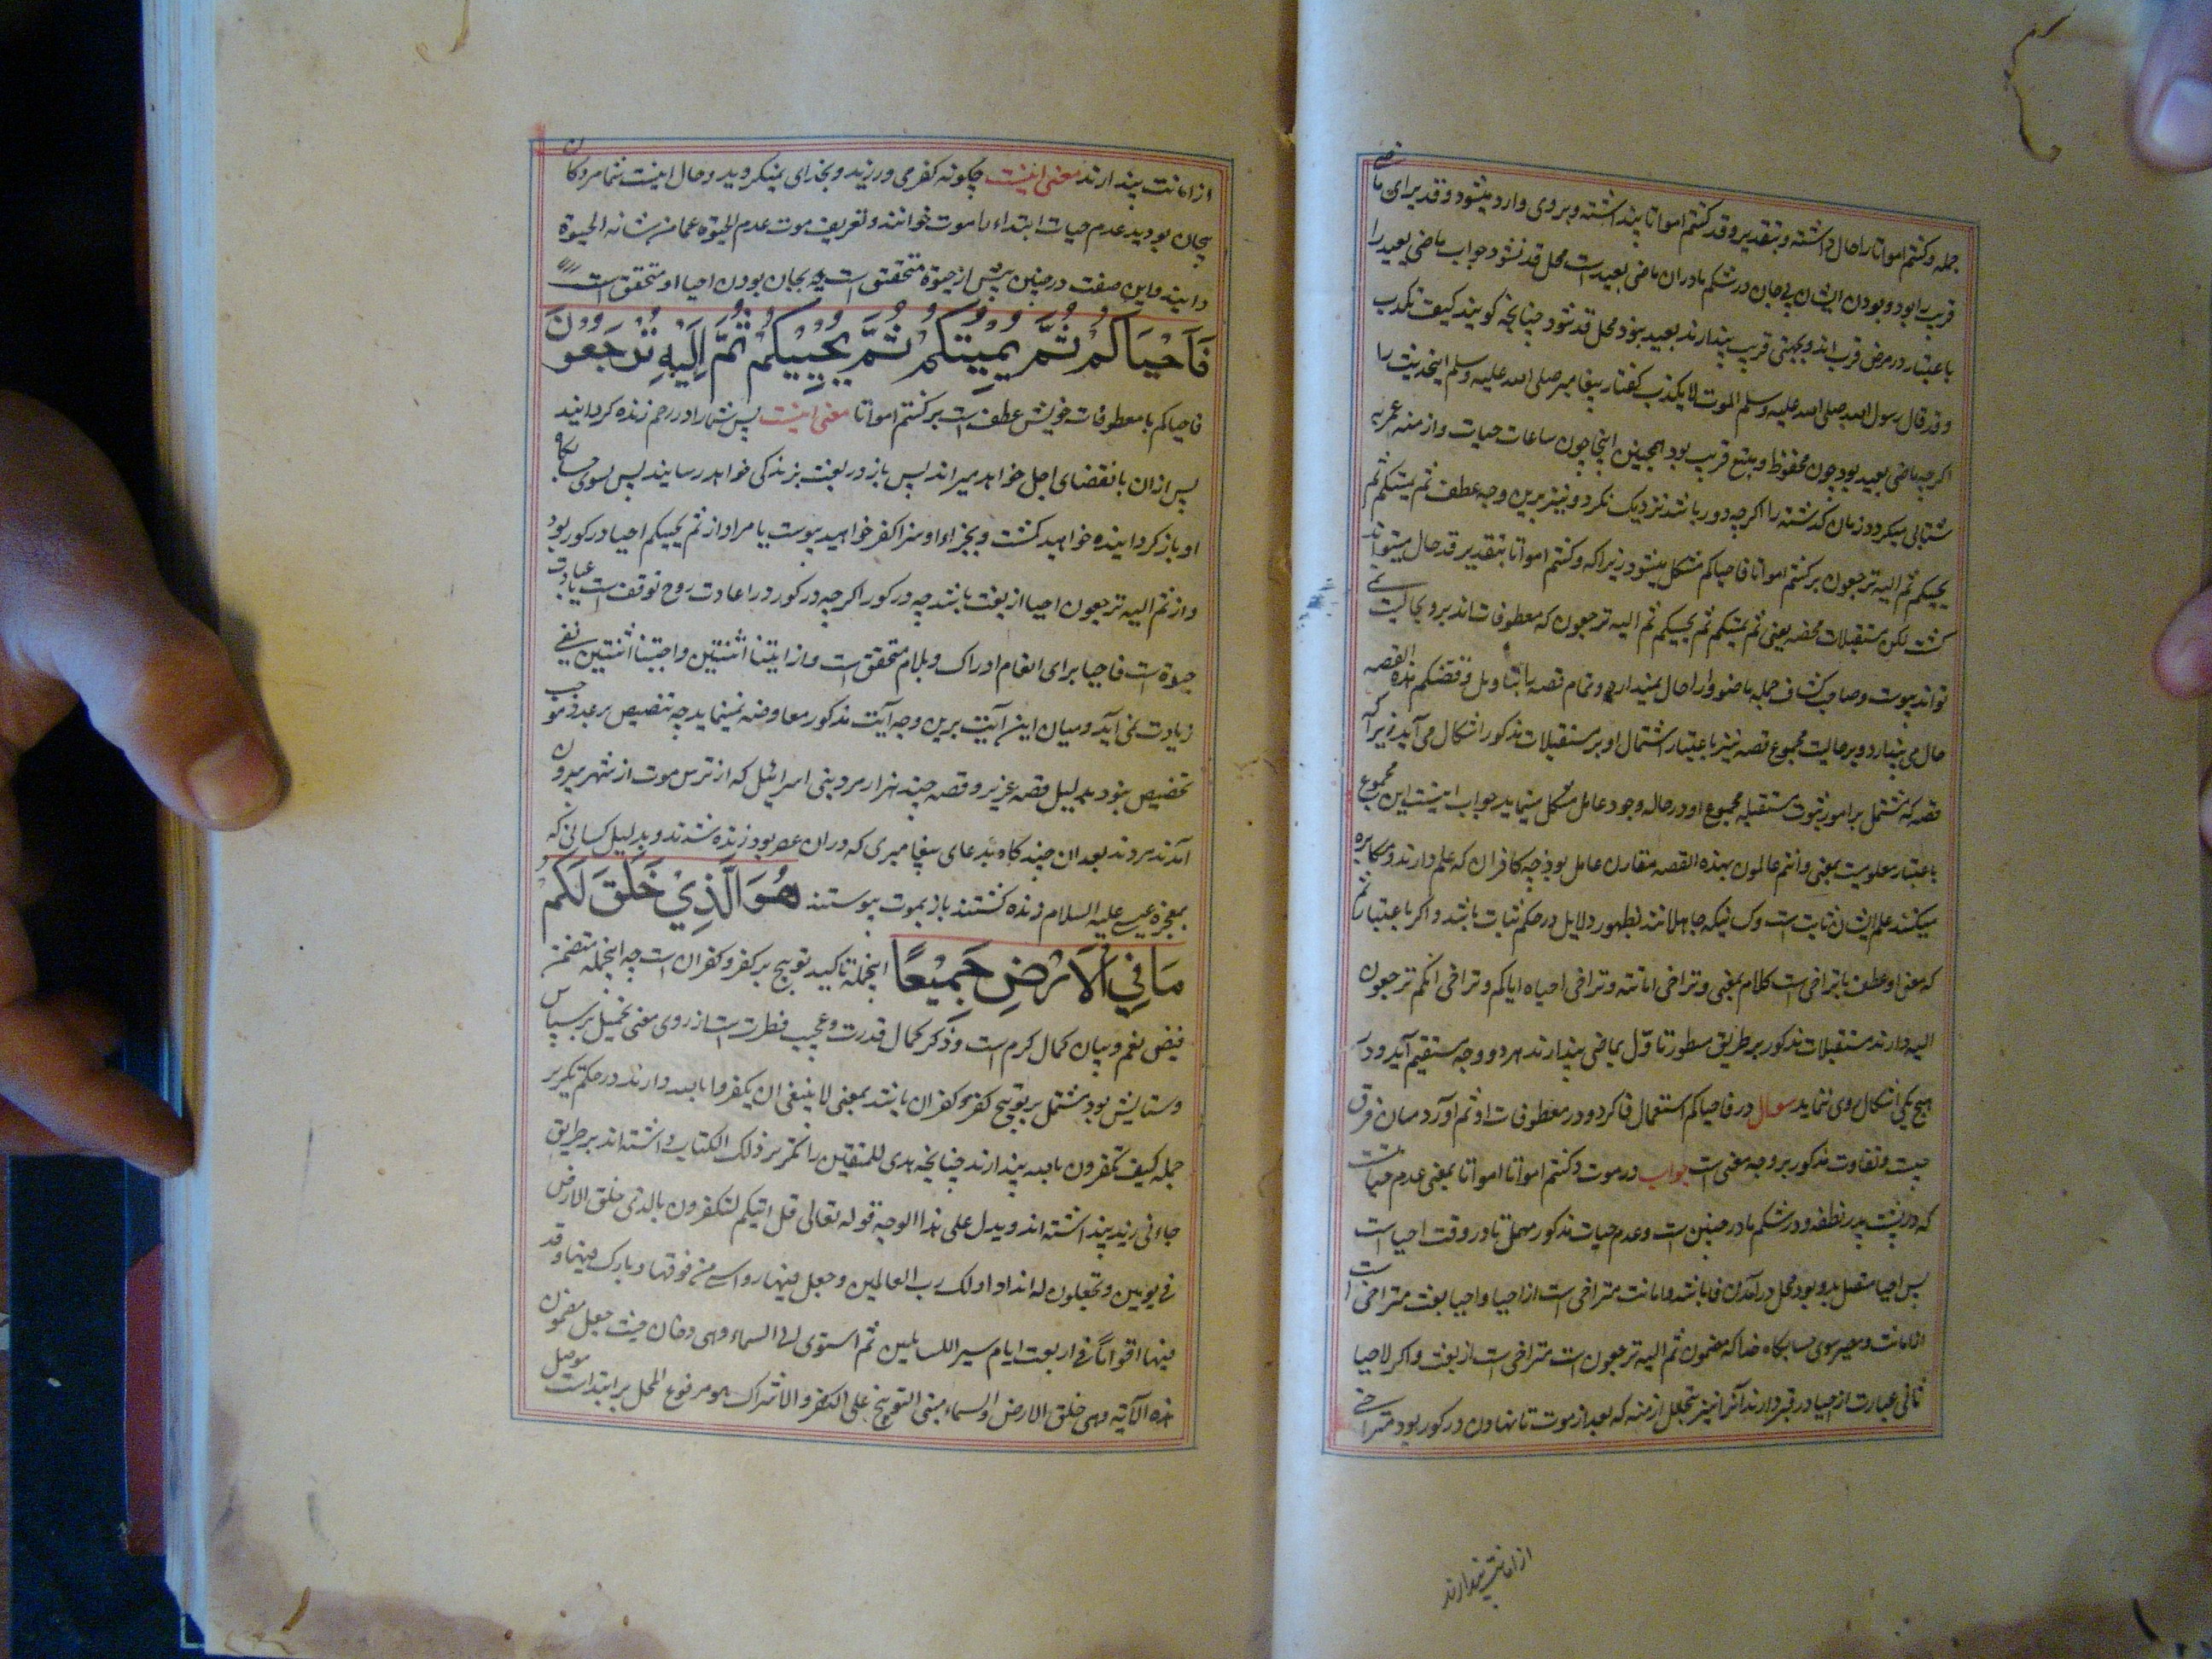 جمله و کنتم امواتا را حال داشته و بتقدیر و قد کنتم امواتا پنداشته و بروی وارد میشود و قد برای ماضی
قریب بود و بودن ایشان بی جان در شکم مادران ماضی بعید است محل قد نشود جواب ماضی بعید را
باعتبار در مرض قرب اند و بجهتی قریب پندارند بعید نبود محل قد شود چنانچه کویند کیف تکذب
و قد قال رسول الله صلی الله علیه وسلم الموت لا یکذب کفتار پیغامبر صلی الله علیه وسلم اینحدیث را
اکرچه ماضی بعید بود چون محفوظ و بتبع قریب بود همچنین اینجا چون ساعات حیات و ازمنه عمر به
شتابی میکردد زمان کذشته را اکرچه دور باشد نزدیک نکرد و نیز برین وجه عطف ثم یمیتکم ثم
یحییکم ثم الیه ترجعون بر کنتم امواتا فاحیاکم مشکل میشود زیراکه و کنتم امواتا بتقدیر قد حال میتواند
کشت لکن مستقبلات محضه یعنی ثم یمیتکم ثم یحییکم ثم الیه ترجعون که معطوفات اند برو بحالیت نمی
تواند پیوست و صاحب کشاف جمله ماضوا را حال نمیدارد و تمام قصه را بتاویل و قصتکم هذه القصه
حال می پندارد و بر حالیت مجموع قصه نیز باعتبار اشتمال او بر مستقبلات مذکور اشکال می آید زیراکه
قصه که مشتمل بر امور ثبوت مستقبله مجموع او در حاله وجود عامل مشکل مینماید جواب اینست این مجموع
باعتبار معلومیت بمعنی و انتم عالمون بهذه القصه مقارن عامل بود چه کافران که علم دارند و مکابره
میکنند علم ایشان ثابت است و کسانیکه جاهلانند بظهور دلایل در حکم ثبات باشد و اکر باعتبار ثم
که معنی او عطف با تراخی است کلام بمعنی و تراخی اماتته و تراخی احیاه ایاکم و تراخی انکم ترجعون
الیه دارند مستقبلات مذکور بر طریق مسطور تاول بماضی پندارند هر دو وجه مستقیم آید و در
هیچ یکی اشکال روی ننماید سوال در فاحیاکم استعمال فا کرد و در معطوفات او ثم آورد میان فرق
چیست و تفاوت مذکور بر وجه معنی است جواب در موت و کنتم امواتا امواتا بمعنی عدم حیاتست
که در پشت پدر نطفه و در شکم مادر جنین است و عدم حیات مذکور مهمل تا در وقت احیا است
پس احیا متصل بدو بود محل در آمدن فا باشد و اماتت متراخی است از احیا و احیا بعث متراخی است
از اماتت و مصیر سوی حسابکاه خدا که مضمون ثم الیه ترجعون است متراخی است از بعث و اکر لاحیا
ثانی عبارت از احیا در قبر دارند آنرا نیز بتخلل ازمنه که بعد از موت تا نهادن در کور بود متراخی
از اماتت پندارند
از اماتت پندارند معنی اینست چکونه کفر می ورزیند و بخدای نمیکروید و حال اینست شما مردکان
بیجان بودید عدم حیات ابتداء را موت خوانند و تعریف موت عدم الحیوة عما من شانه الحیوة
دانید و این صفت در جنین پیش از حیوة متحقق است به بیجان بودن احیا او متحقق است
فَاَحْيَاكُمْ ثُمَّ يُمِيْتُكُمْ ثُمَّ يُحْيِيْكُمْ ثُمَّ اِلَيْهِ تُرْجَعُوْنَ
فاحیاکم با معطوفات خویش عطف است بر کنتم امواتا معنی اینست پس شما را در رحم زنده کردانید
پس از ان بانقضای اجل خواهد میراند پس باز در بعث بزندکی خواهد رسانید پس بسوی حسابکاه
او باز کرداینده خواهید کشت و بجزاء او سزا کفر خواهید پیوست یا مراد از ثم یحییکم احیا در کور بود
و از ثم الیه ترجعون احیا از بعث باشد چه در کور اکرچه در کور در اعادت روح توقف است یا عبارت
حیوة است فاحیا برای انعام ادراک و بلام متحقق است و از امتنا اثنتین و احییتنا اثنتین نفی
زیادت نمی آید و میان این آیت برین وجه آیت مذکور معاوضه نمینماید چه تنصیص بر عدد موجب
تخصیص نبود بدلیل قصه عزیر و قصه چند هزار مرد بنی اسرائیل که از ترس موت از شهر بیرون
آمدند مردند بعد ان چند کاه بدعای پیغامبری که دران عصر بود زنده شدند و بدلیل کسانی که
بمعجزه عیسی علیه السلام زنده کشتند باز بموت پیوستند هُوَ الَّذِيْ خَلَقَ لَكُمْ
مَا فِي الْاَرْضِ جَمِيْعًا اینجمله تاکید توبیخ بر کفر و کفران است چه اینجمله متضمن
فیض نعم و بیان کمال کرم است و ذکر کمال قدرت و عجیب فطرت است از روی معنی تحمیل بر سپاس
و ستایش بود مشتمل بر توبیخ کفر و کفران باشد بمعنی لا ینبغی ان یکفروا بالله دارند در حکم تکریر
جمله کیف تکفرون بالله پندارند چنانچه هدی للمتقین را تکریر ذلک الکتاب داشته اند بر طریق
جاءنی زید زید پنداشته اند و یدل علی هذا الوجه قوله تعالی قل ائنکم لتکفرون بالذی خلق الارض
فی یومین و تجعلون له اندادا ذلک رب العالمین و جعل فیها رواسی من فوقها و بارک فیها و قدر
فیها اقواتها فی اربعة ایام سواء للسایلین ثم استوی الی السماء و هی دخان حیث جعل مضمون
هذه الآیة و هی خلق الارض و السماء مبنی التوبیخ علی الکفر و الاشراک هو مرفوع المحل بر ابتداست موصل